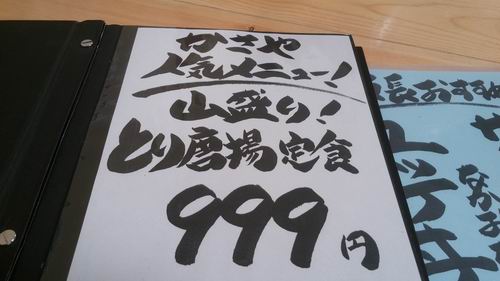 かさや
人気メニュー!
山盛り!
とり唐揚定食
999円
店長おすすめ